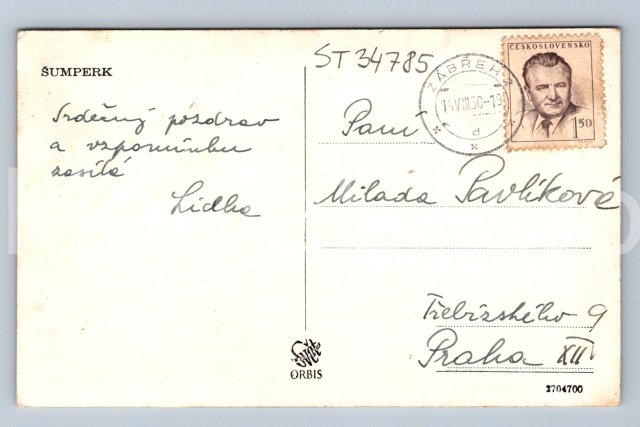 ŠUMPERK
Srdečný pozdrav
a vzpomínku
zasílá
Lidka
ST 34785
ZÁBŘEH 2
14.VIII.50-19
d
ČESKOSLOVENSKO
1.50
Paní
Milada Pavlíková
Třebízského 9
Praha XII
Svět
ORBIS
2704700